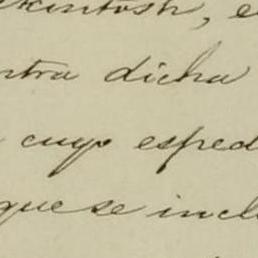 ckintosh, e
ntra dicha
cuyo esped
que se incl